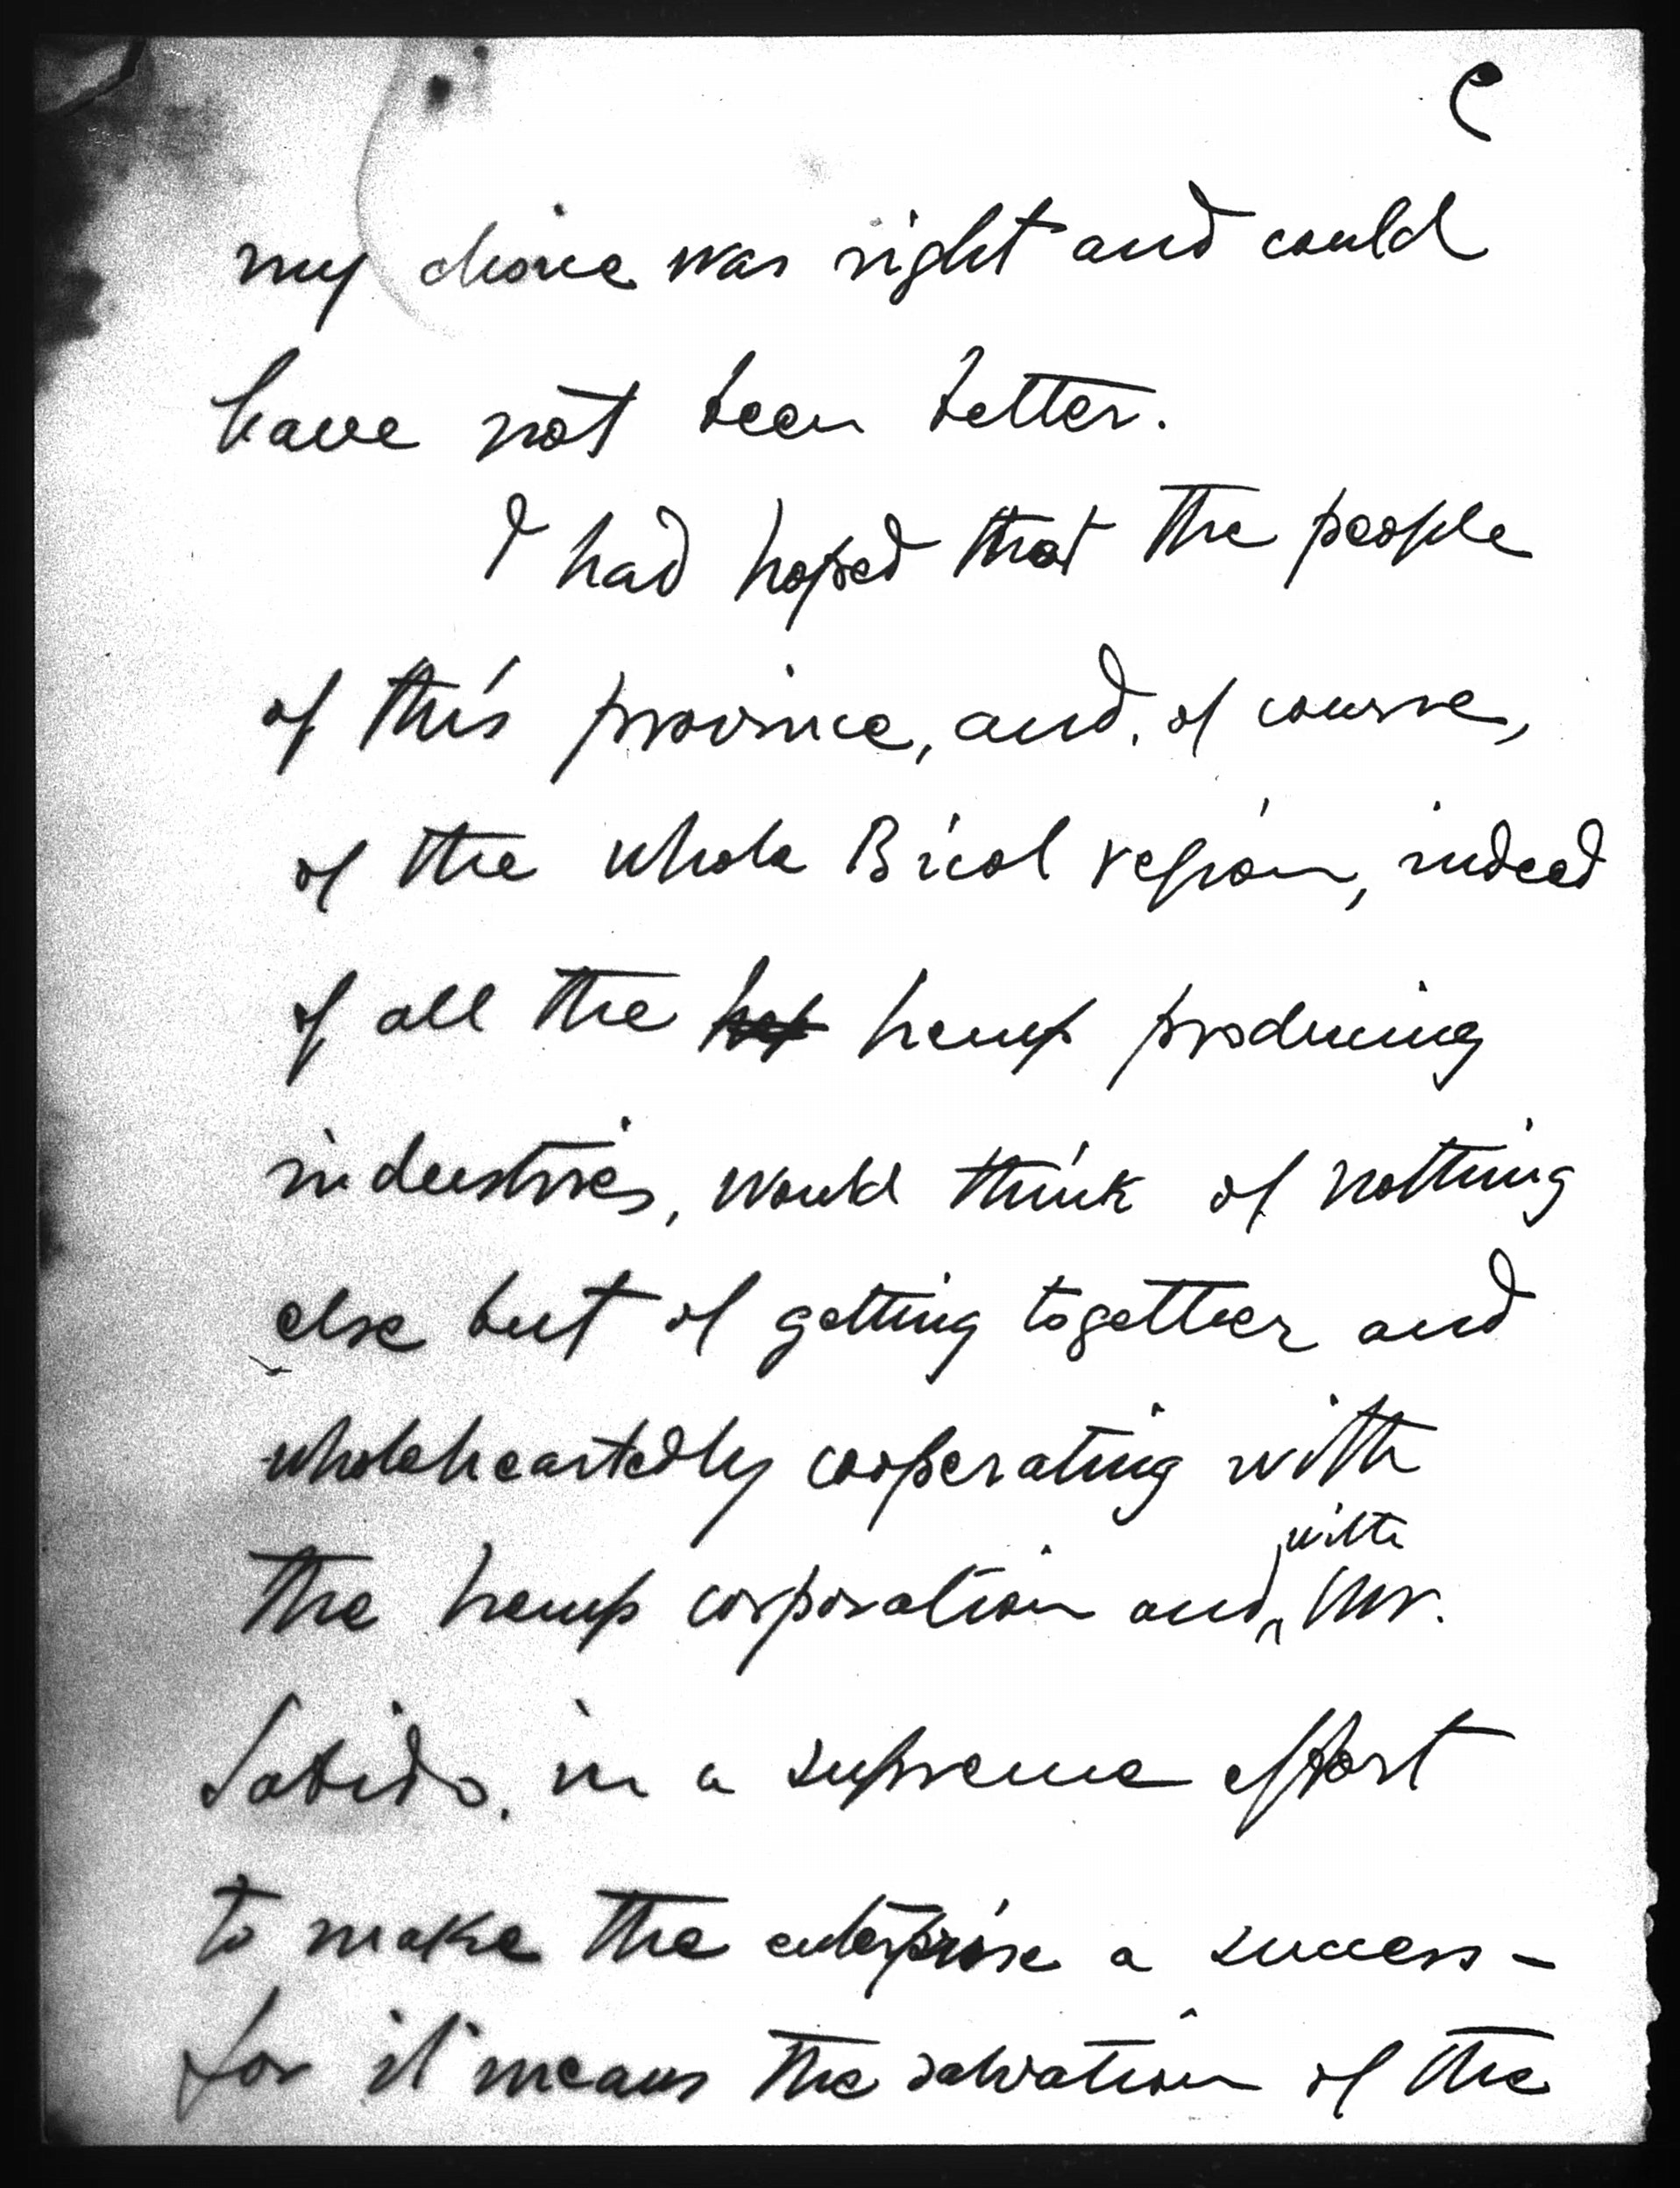 my choice was right and could
have not been better.
I had hoped that the people
of this province, and, of course,
of the whole Bicol region, indeed
of all the hemp producing
industries, would think of nothing
else but of getting together and
wholeheartedly cooperating with
the hemp corporation and with Mr.
Sabido, in a supreme effort
to make the enterprise a success –
for it means the salvation of the